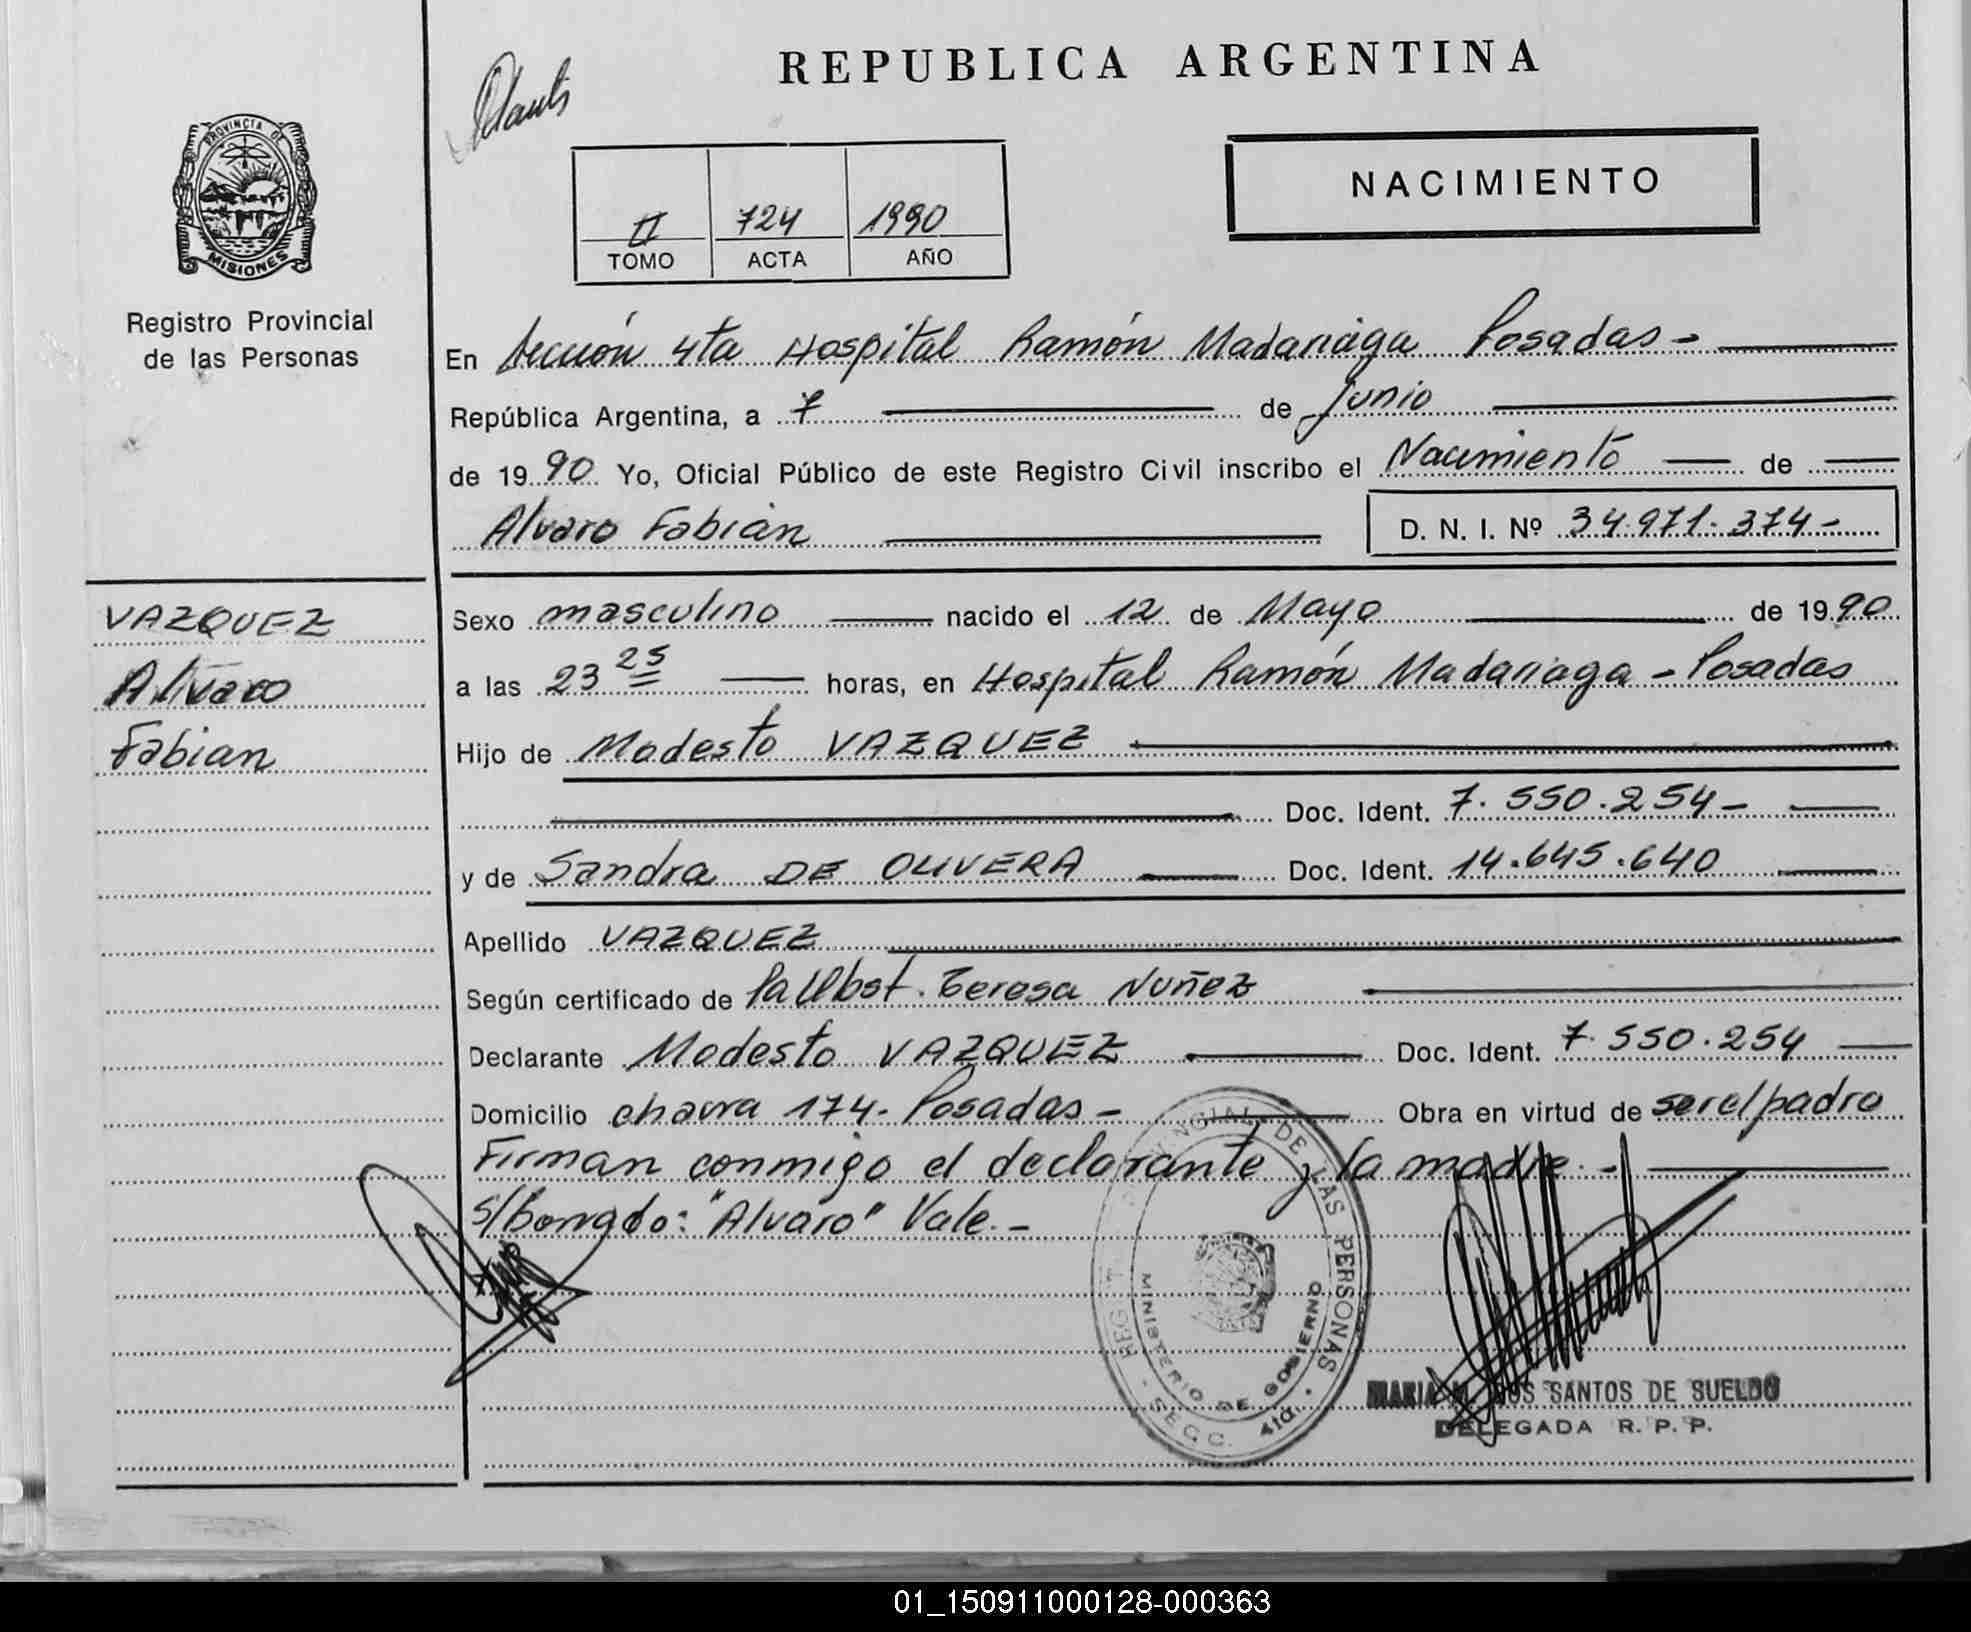 REPUBLICA ARGENTINA
PROVINCIA DE
MISIONES
Registro Provincial
de las Personas
II 724 1990
TOMO ACTA AÑO
NACIMIENTO
En Sección 4ta Hospital Ramón Madariaga Posadas -
República Argentina, a 7 de Junio
de 1990 Yo, Oficial Público de este Registro Civil inscribo el Nacimiento de
Alvaro Fabián D. N. I. Nº 34.971.374-
VAZQUEZ
Alvaro
Fabian
Sexo masculino nacido el 12 de Mayo de 1990
a las 23 25 horas, en Hospital Ramón Madariaga - Posadas
Hijo de Modesto VAZQUEZ
Doc. Ident. 7.550.254-
y de Sandra DE OLIVERA Doc. Ident. 14.645.640
Apellido VAZQUEZ
Según certificado de la Obst. Teresa Nuñez
Declarante Modesto VAZQUEZ Doc. Ident. 7.550.254
Domicilio chacra 174- Posadas - Obra en virtud de ser el padre
Firman conmigo el declarante y la madre.-
s/borrado: "Alvaro" Vale.-
DE LAS PERSONAS
MINISTERIO DE GOBIERNO
SECC. 4ta.
MARIA DOS SANTOS DE SUELDO
DELEGADA R. P. P.
01_150911000128-000363